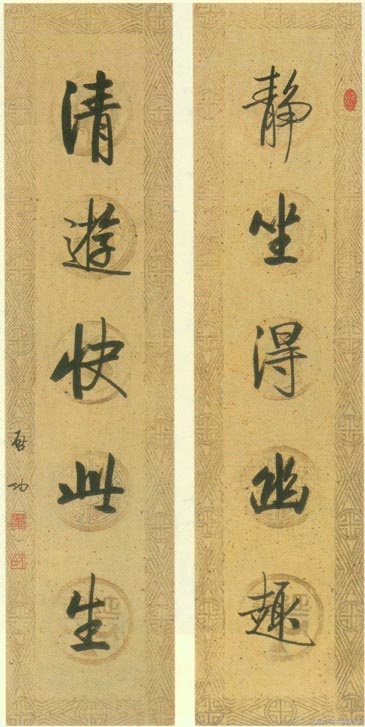 静坐得幽趣
清遊快此生
启功